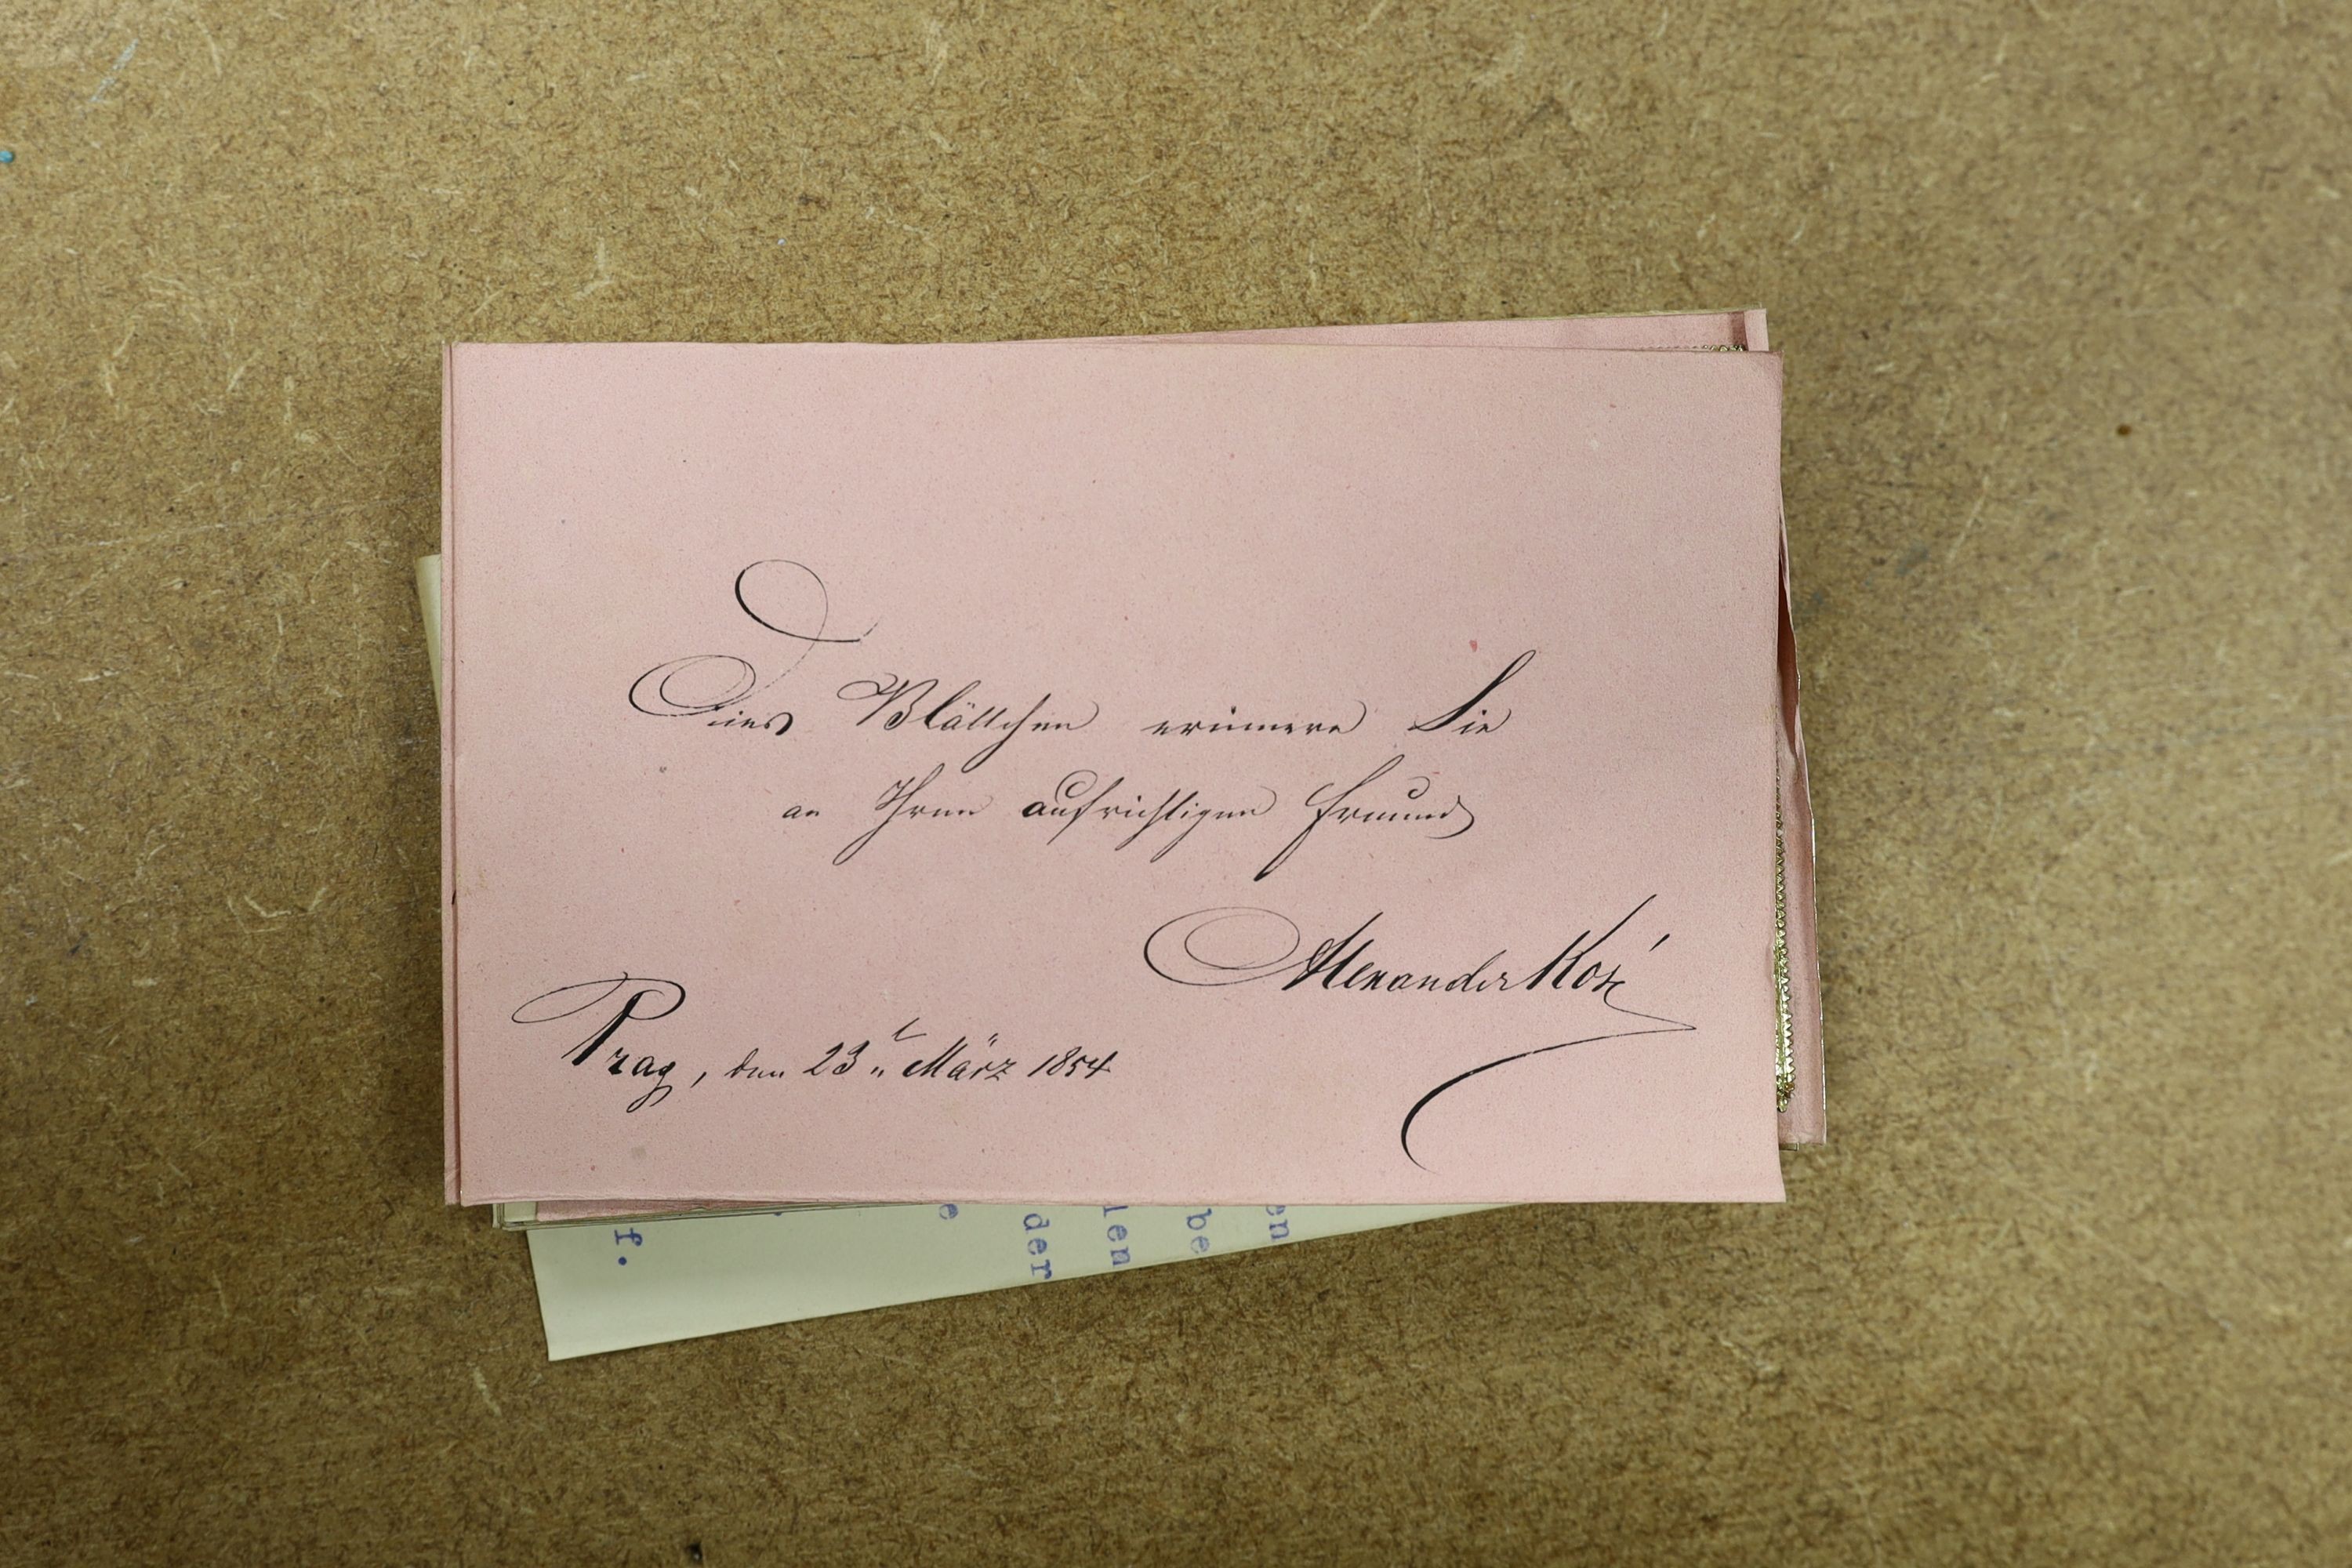 Dies Blättchen erinnere Sie
an Ihren aufrichtigen Freund
Alexander
Prag, den 23t. März 1854
f.
e
der
len
be
en